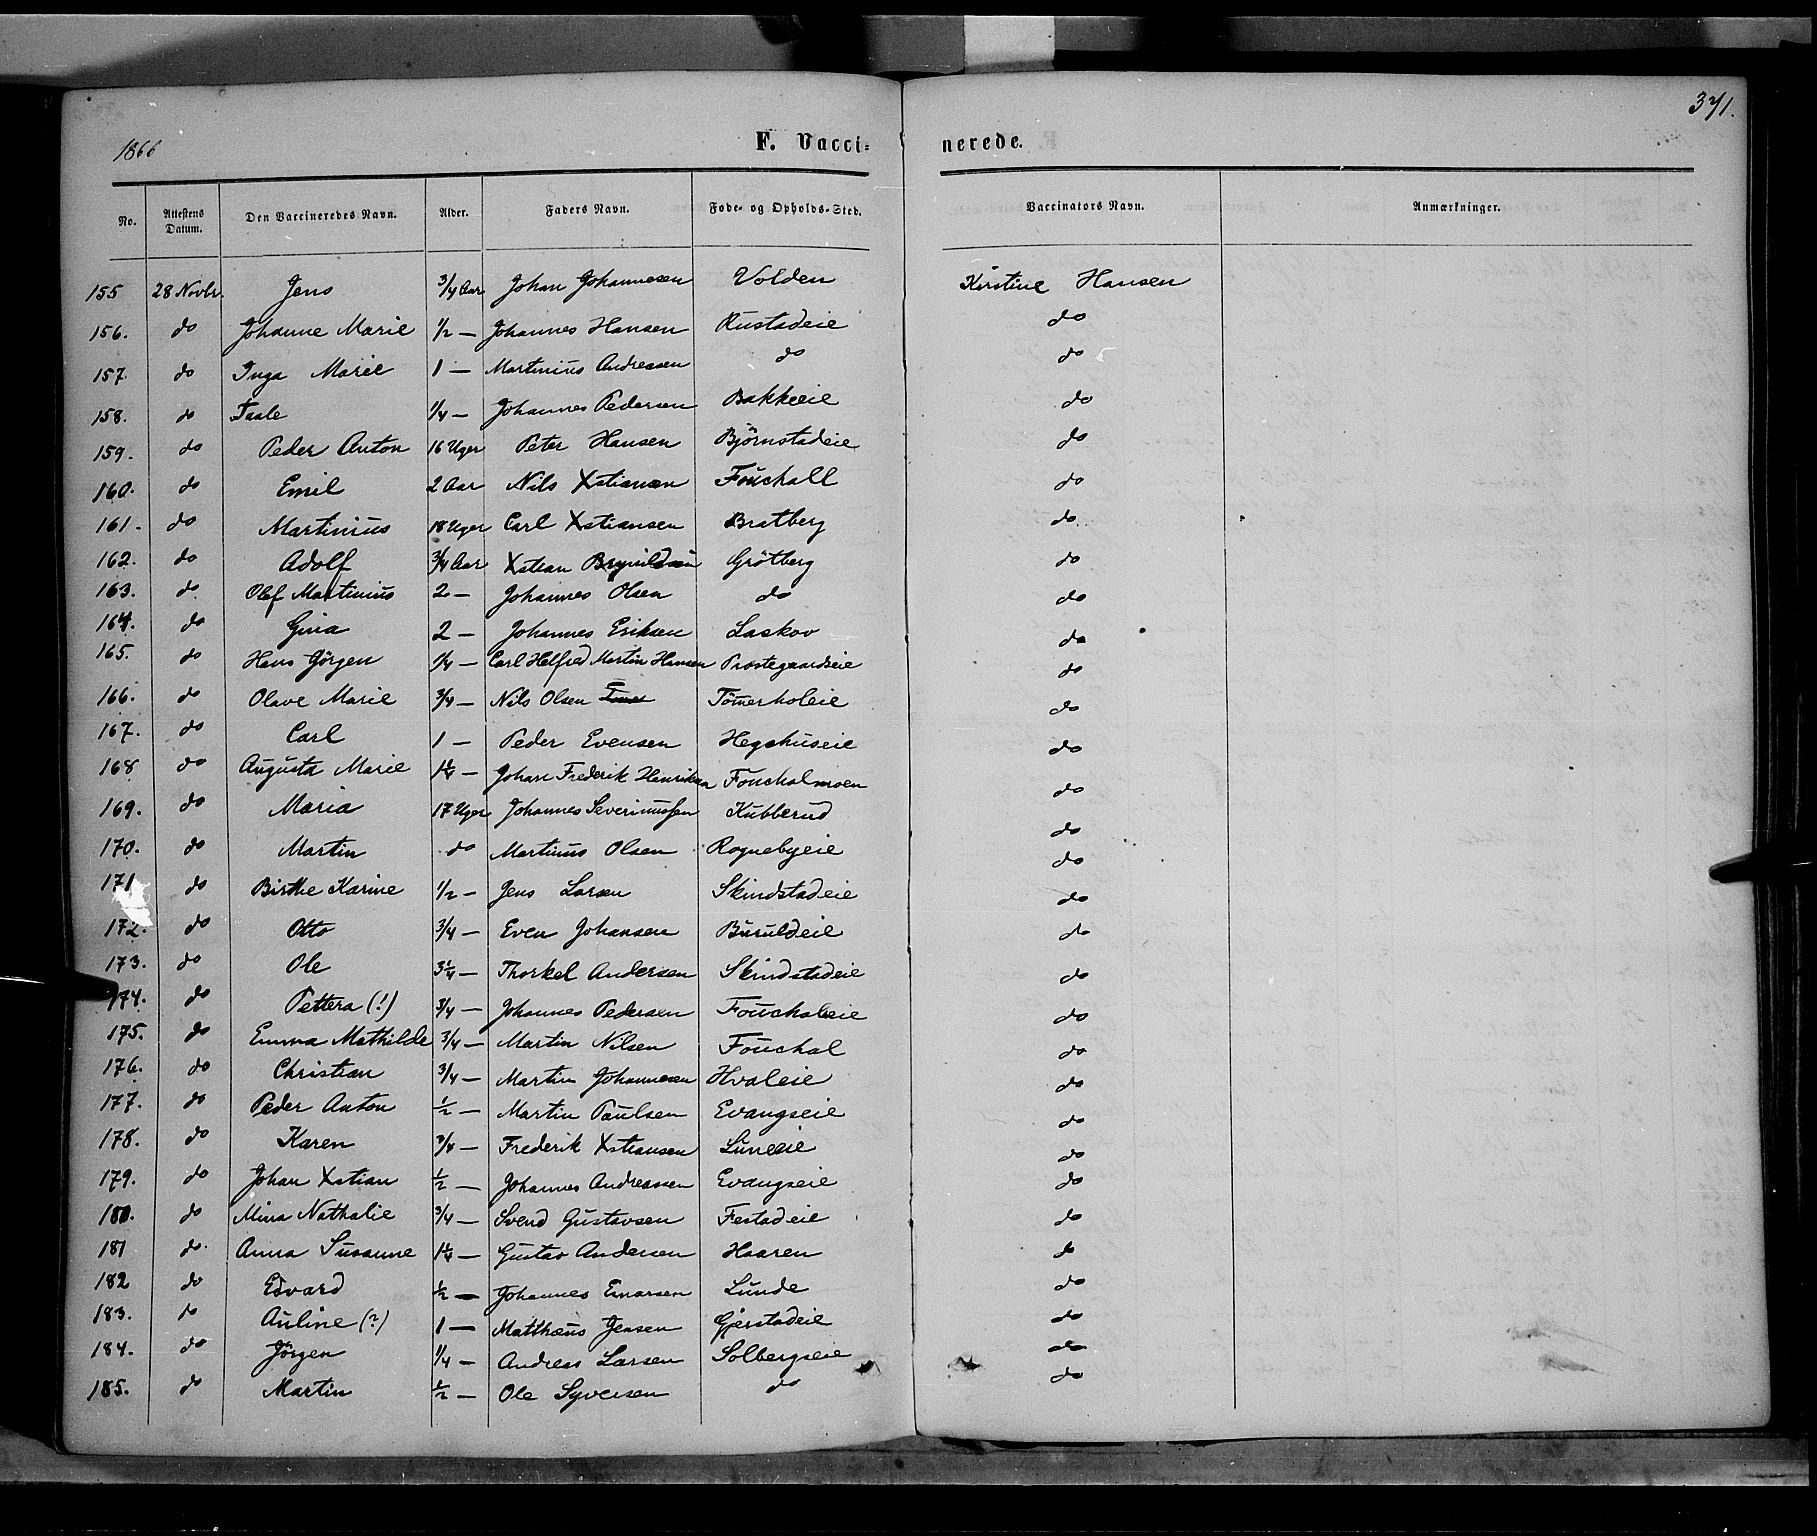 371.
1866 F. Vacci= nerede.
No. Attestens Datum. Den Vaccineredes Navn. Alder. Faders Navn. Føde- og Opholds-Sted. Vaccinators Navn. Anmærkninger.
155 28 Novbr. Jens 3/4 Aar Johan Johannesen Volden Kirstine Hansen
156. do Johanne Marie 1/2 — Johannes Hansen Rustadeie do
157. do Inga Marie 1 — Martinius Andreasen do do
158. do Taale 1/4 — Johannes Pedersen Bakkeeie do
159. do Peder Anton 16 Uger Peter Hansen Björnstadeie do
160. do Emil 2 Aar Nils Xstiansen Fouchall do
161. do Martinius 18 Uger Carl Xstiansen Bratberg do
162. do Adolf 3/4 Aar Xstian Brynildsen Grötberg do
163. do Olef Martinius 2 — Johannes Olsen do do
164. do Gina 2 — Johannes Eriksen Laskov do
165. do Hans Jörgen 1/4 — Carl Helfred Martin Hansen Prostegaardseie do
166. do Olave Marie 3/4 — Nils Olsen Tömerholeie do
167. do Carl 1 — Peder Evensen Heghuseie do
168 do Augusta Marie 1 1/4 — Johan Frederik Henriksen Fouchalmoen do
169. do Maria 17 Uger Johannes Severinussen Kubberud do
170. do Martin do Martinus Olsen Rognebyeie do
171 do Birthe Karine 1/2 — Jens Larsen Skindstadeie do
172. do Otto 3/4 — Even Johansen Buruldeie do
173. do Ole 3 1/4 — Thorkel Andersen Skindstadeie do
174. do Pettera (!) 3/4 — Johannes Pedersen Fouchaleie do
175. do Emma Mathilde 3/4 — Martin Nilsen Fouchal do
176. do Christian 3/4 — Martin Johannesen Hvaleie do
177. do Peder Anton 1/2 — Martin Paulsen Evangseie do
178. do Karen 3/4 — Frederik Xstiansen Luneeie do
179. do Johan Xstian 1/2 — Johannes Andreassen Evangseie do
180. do Mina Nathalie 3/4 — Svend Gustavsen Festadeie do
181 do. Anna Susanne 1 1/4 — Gustav Andersen Haaren do
182 do Edvard 1/2 — Johannes Einarsen Lunde do
183. do Auline (?) 1 — Matthæus Jensen Gjerstadeie do
184. do Jörgen 1/4 — Andreas Larsen Solbergseie do
185. do Martin 1/2 — Ole Syversen do do